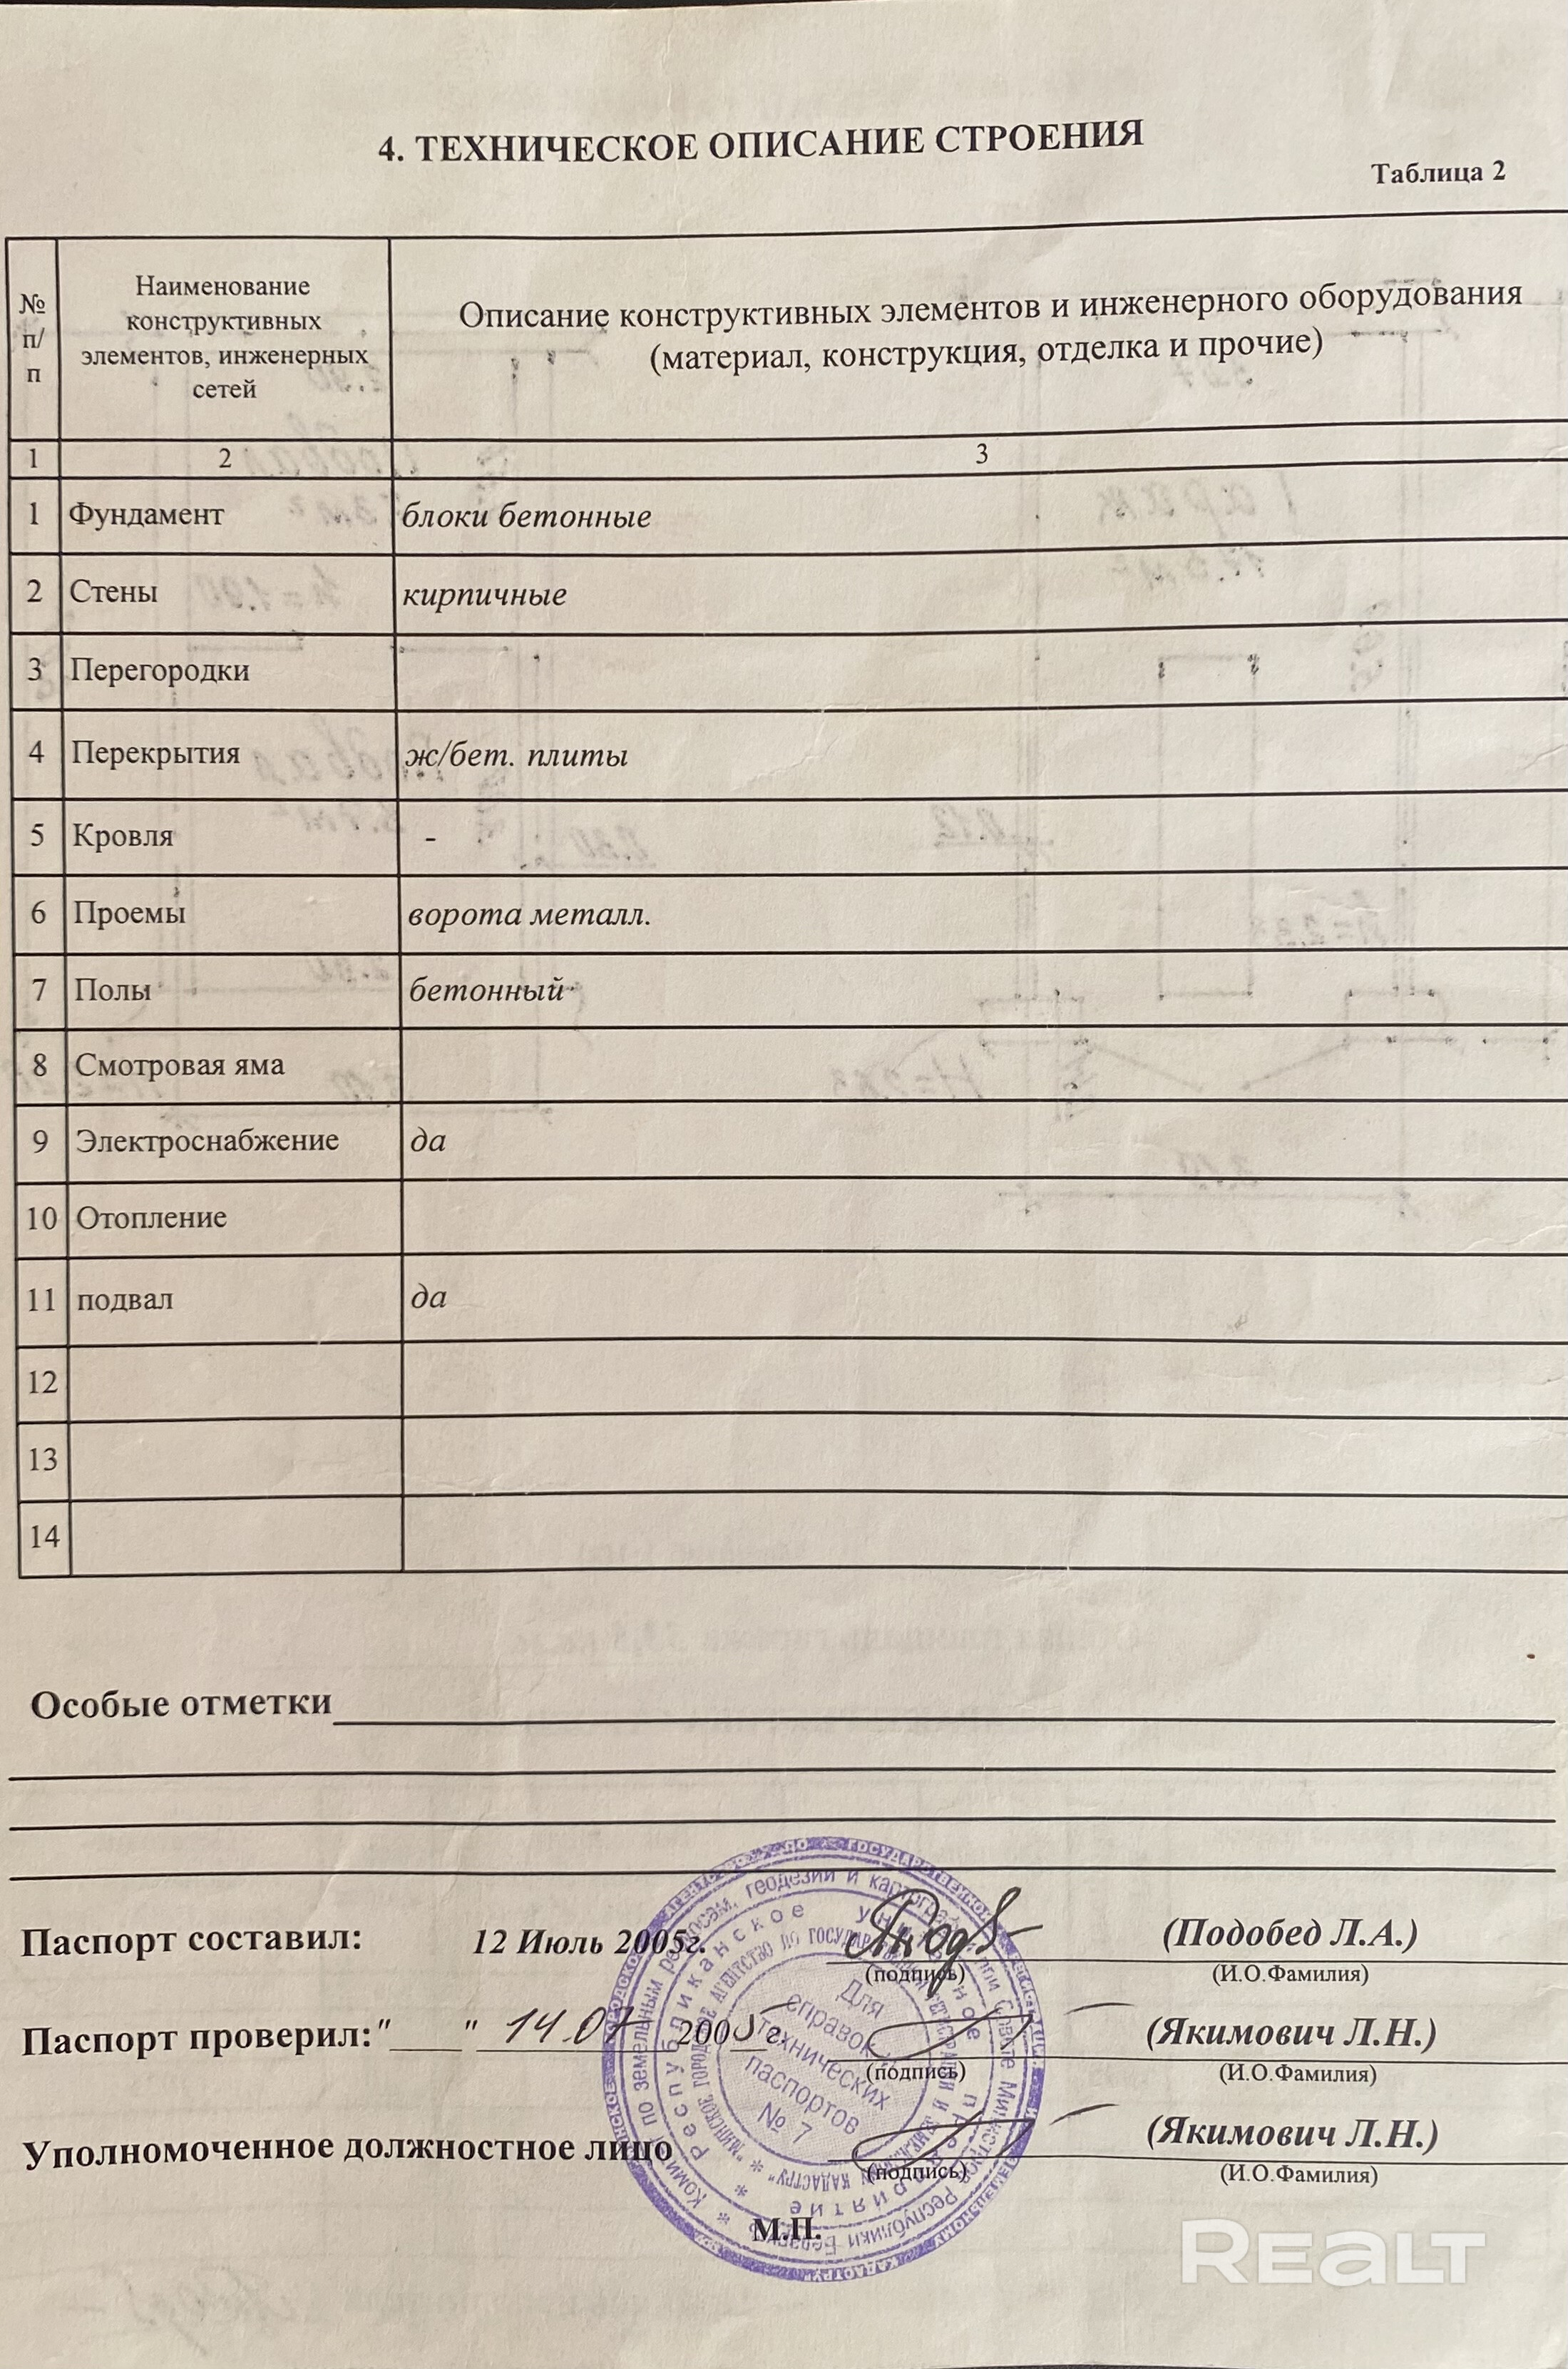 4. ТЕХНИЧЕСКОЕ ОПИСАНИЕ СТРОЕНИЯ
Таблица 2
№ п/п
Наименование
конструктивных
элементов, инженерных
сетей
Описание конструктивных элементов и инженерного оборудования
(материал, конструкция, отделка и прочие)
1 2 3
1 Фундамент блоки бетонные
2 Стены кирпичные
3 Перегородки
4 Перекрытия ж/бет. плиты
5 Кровля -
6 Проемы ворота металл.
7 Полы бетонный
8 Смотровая яма
9 Электроснабжение да
10 Отопление
11 подвал да
12
13
14
Особые отметки
Паспорт составил: 12 Июль 2005г. (Подобед Л.А.)
(подпись) (И.О.Фамилия)
Паспорт проверил: " " 14.07 2005 г. (Якимович Л.Н.)
(подпись) (И.О.Фамилия)
Уполномоченное должностное лицо (Якимович Л.Н.)
(подпись) (И.О.Фамилия)
М.П.
Для
справок и
технических
паспортов
№ 7
Комитет по земельным ресурсам, геодезии и картографии при Совете Министров Республики Беларусь
Республиканское унитарное предприятие
REALT